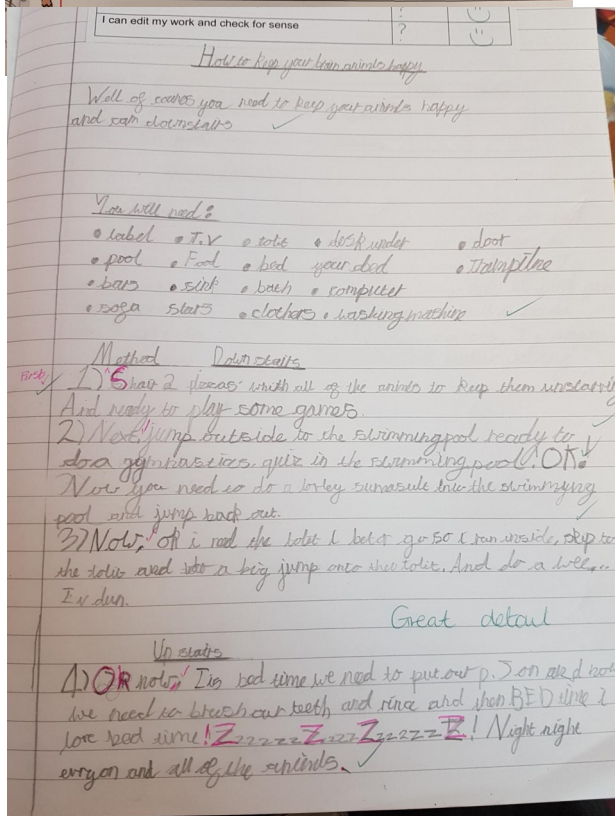 I can edit my work and check for sense
?
?
How to keep your brain animls happy
Well of cores you need to keep your animls happy
and cam downstairs
You will need:
• label • T.V • tolit • desk under • door
• pool • Food • bed your bed • Trampilne
• bars • sink • bath • computer
• soga stars • clothers • washing mashine
Method Downstairs
First, 1) Shair 2 pizzas with all of the animls to keep them unstarving
And ready to play some games.
2) Next, jump outside to the swimming pool ready to
do a gymnastics quiz in the swimming pool! OK!
Now you need to do a lovley sumasult into the swimmying
pool and jump back out.
3) Now, OR i need the tolet I beter go so I run inside, skip to
the tolit and do a big jump onto the tolit. And do a wee...
I'v dun.
Great detail
Upstairs
4) OR now, I is bed time we need to put our p.J on and now
we need to brush our teeth and rince and then BED time I
love bad time! Zzzzzz Zzzzz Zzzzzzz Z! Night night
evryon and all of the animls.